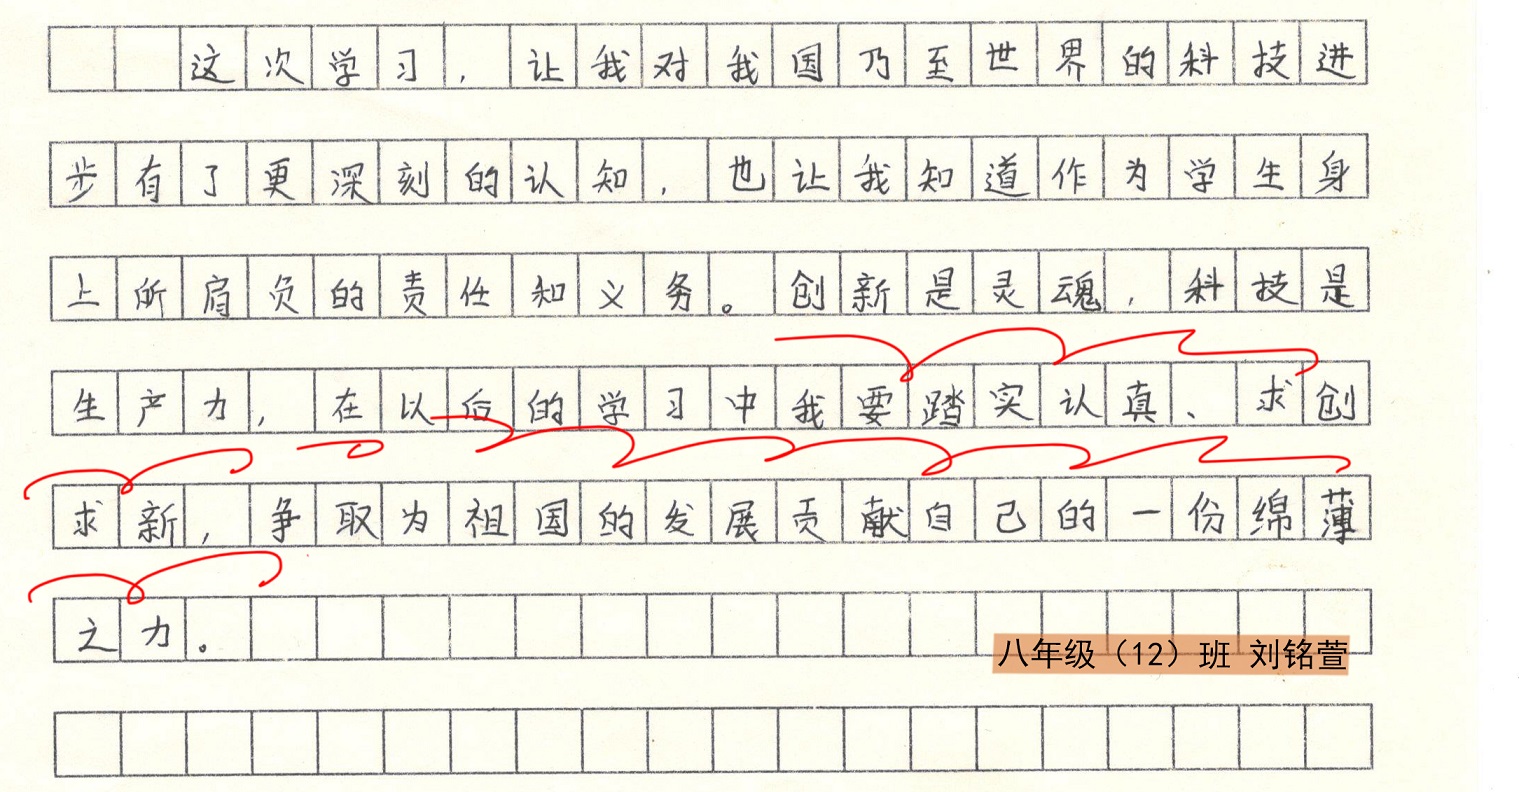 这次学习，让我对我国乃至世界的科技进
步有了更深刻的认知，也让我知道作为学生身
上所肩负的责任和义务。创新是灵魂，科技是
生产力，在以后的学习中我要踏实认真、求创
求新，争取为祖国的发展贡献自己的一份绵薄
之力。
八年级（12）班 刘铭萱